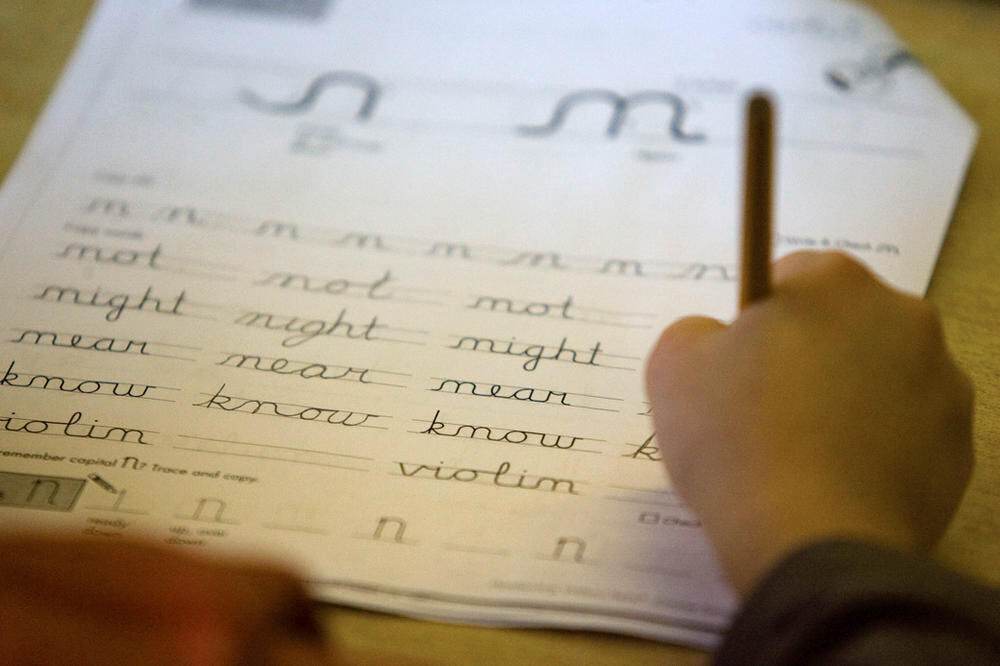 n n
n n n n n n n n
Check n
not not not
night night night
near near near
know know know k
iolin violin
remember capital n? Trace and copy.
n n n n
Check